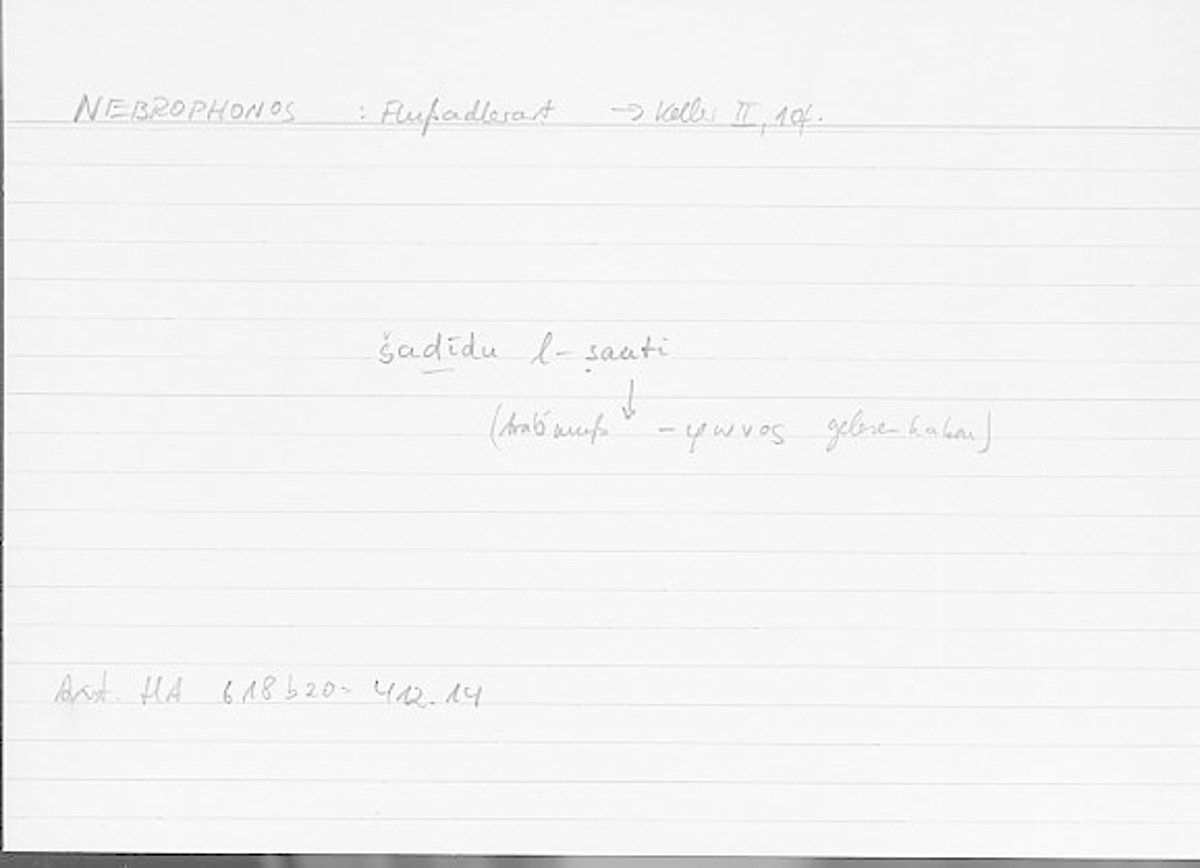 NEBROPHONOS : Flußadlerart → Keller II, 10f.
šadīdu l-ṣauti
↓
(Arab muß -φωνος gelesen haben)
Arist. HA 618b20 = 412.14